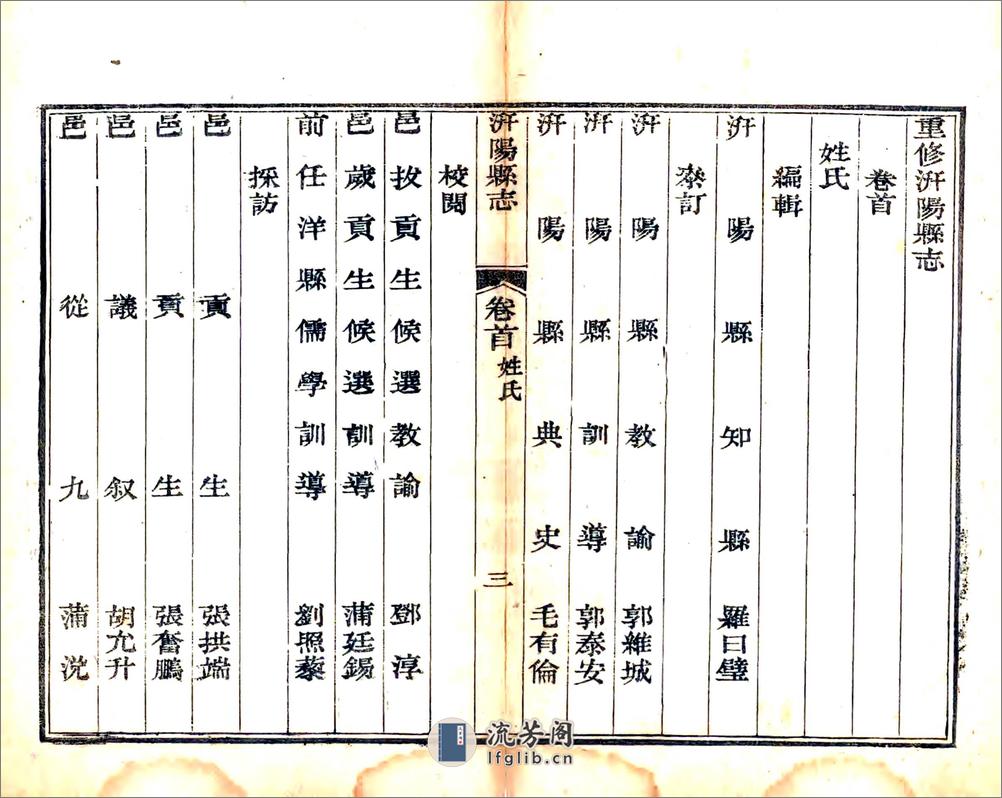 重修汧陽縣志
卷首
姓氏
編輯
汧陽縣知縣羅曰璧
叅訂
汧陽縣教諭郭維城
汧陽縣訓導郭泰安
汧陽縣典史毛有倫
汧陽縣志 卷首 姓氏 三
校閱
邑拔貢生候選教諭鄧淳
邑歲貢生候選訓導蒲廷錫
前任洋縣儒學訓導劉照藜
採訪
邑貢生張拱端
邑貢生張奮鵬
邑議叙胡允升
邑從九蒲涗
流芳阁
lfglib.cn